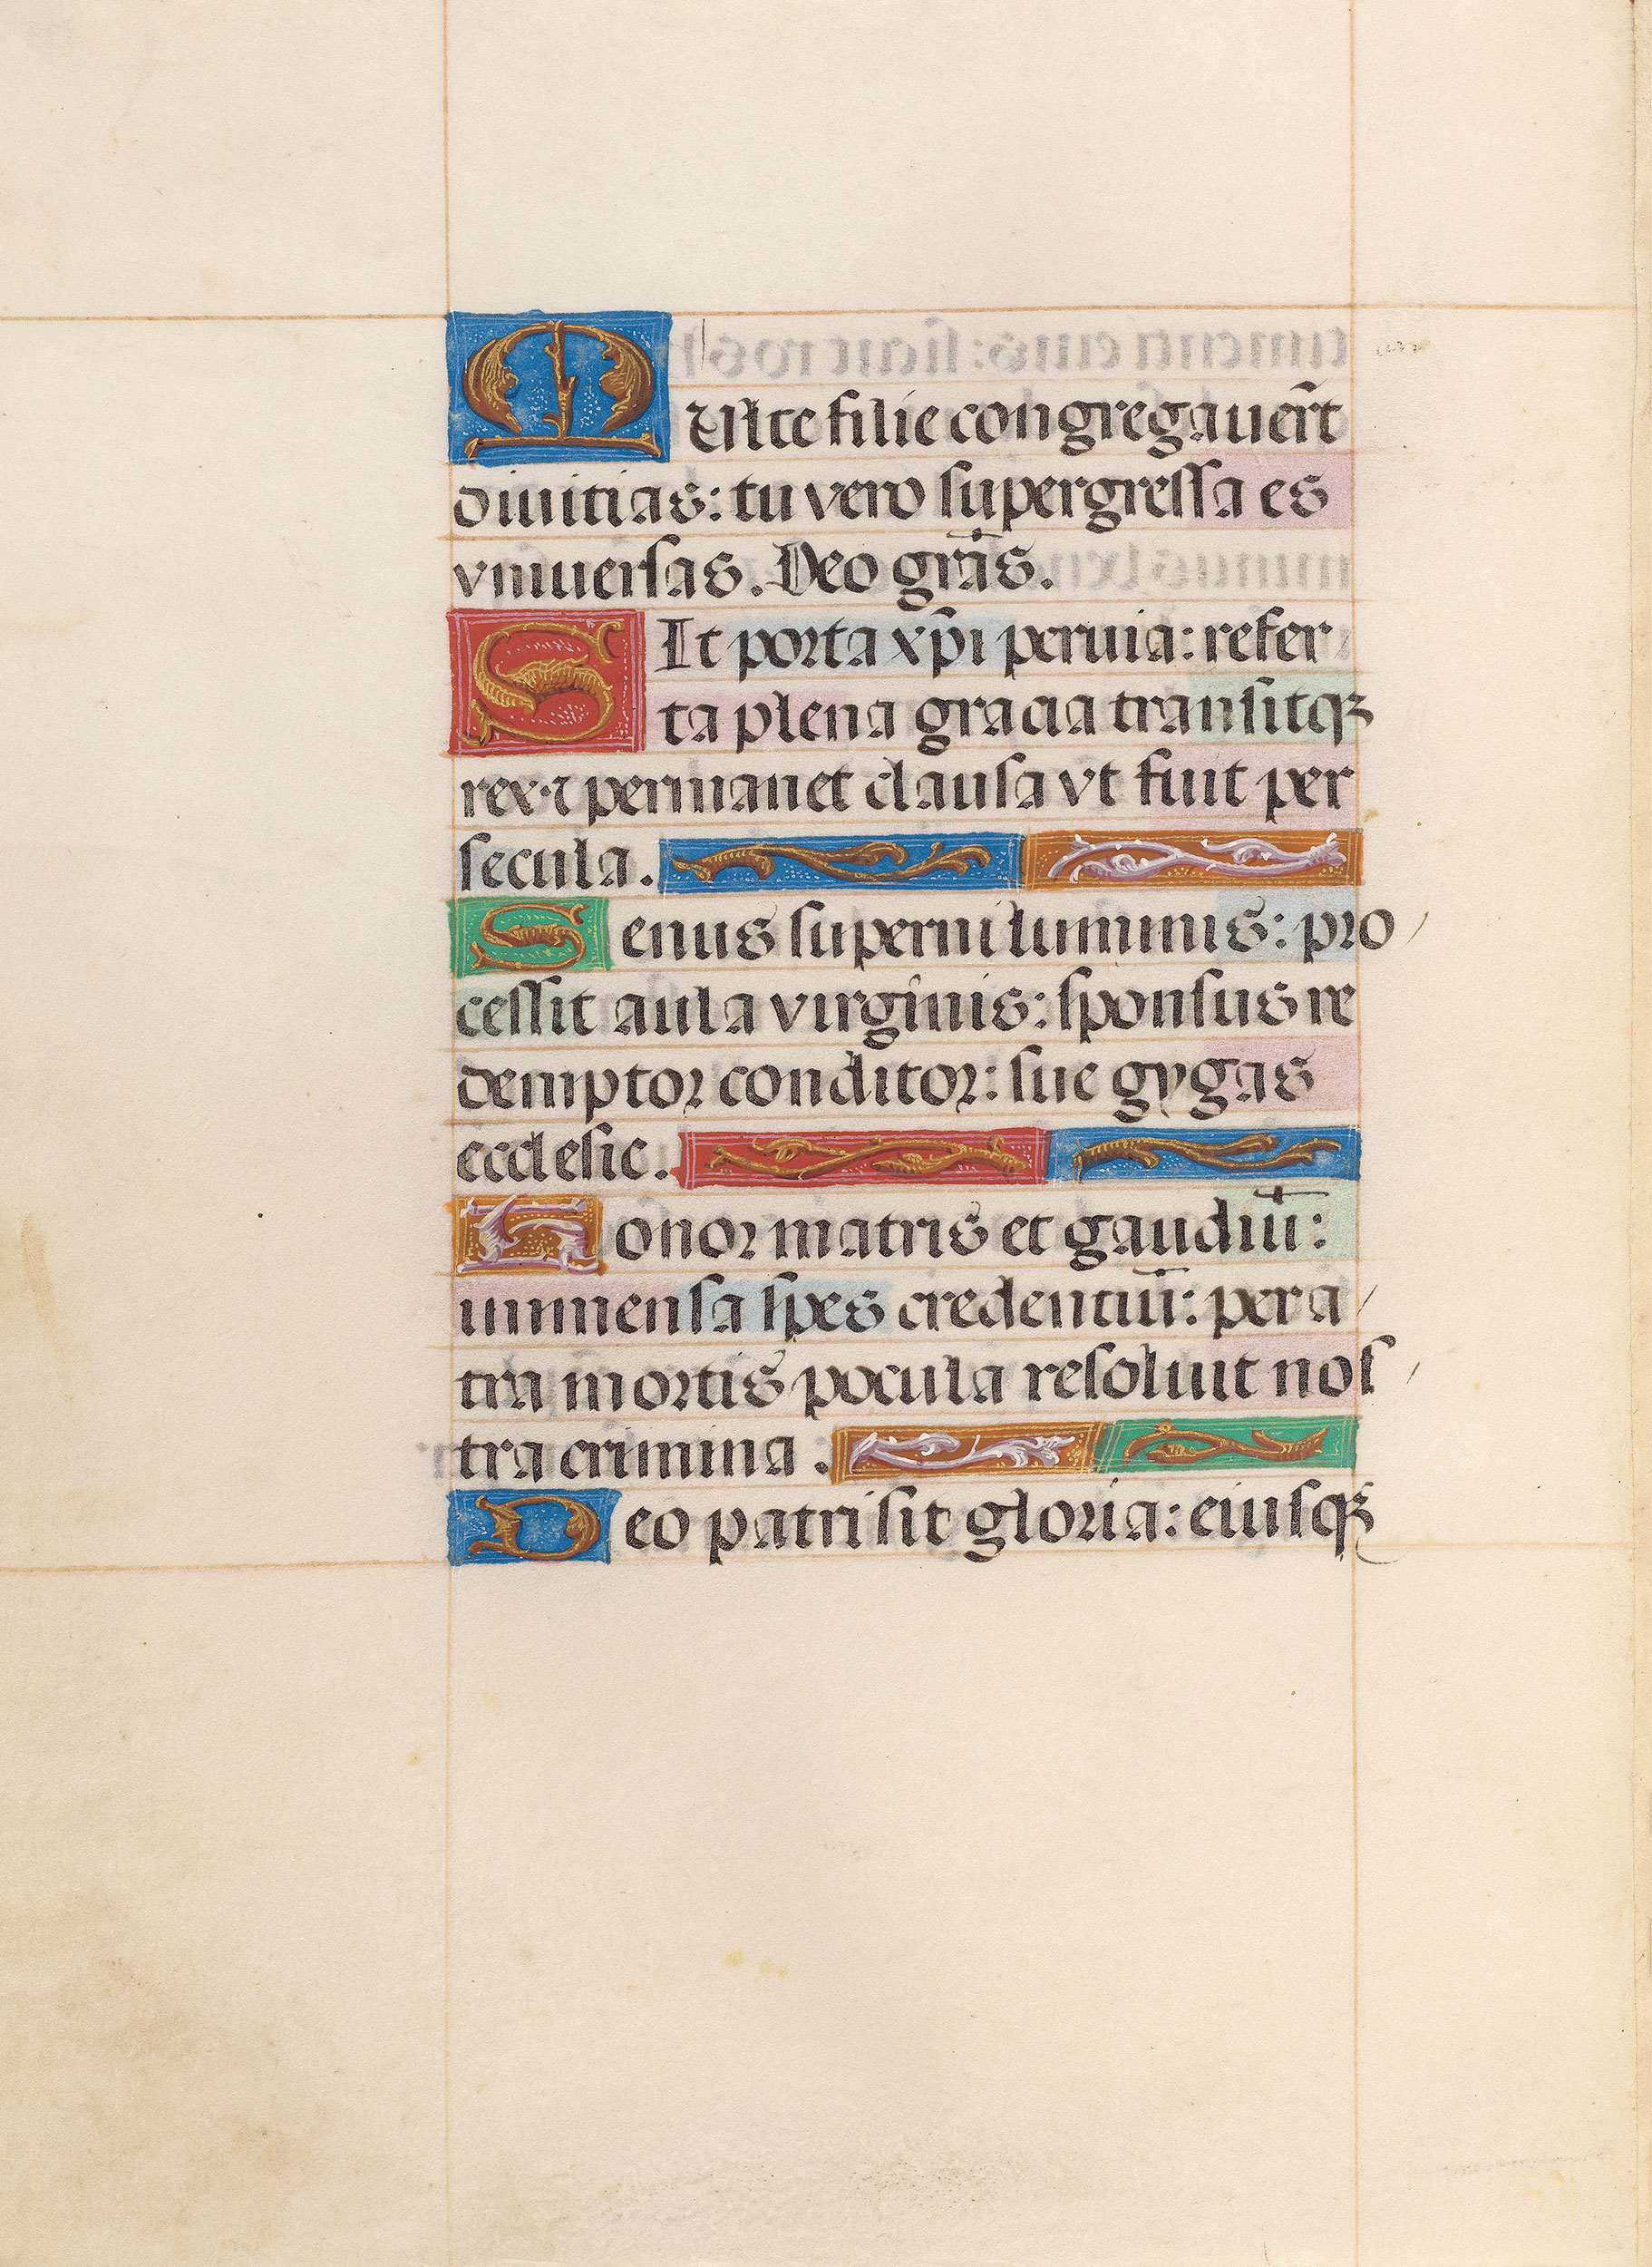 MUlte filie congregauer̃t
diuitias: tu vero supergressa es
vniuersas. Deo gr̃as.
SIt porta xp̃i peruia: refer
ta plena gracia transitqȝ
rex·⁊ permanet clausa vt fuit per
secula.
Senus superni luminis: pro
cessit aula virginis: sponsus re
demptor conditor: sue gygas
ecclesie.
Honor matris et gaudiũ:
immensa spes credentiũ: per a
tra mortis pocula resoluit nos
tra crimina.
Deo patri sit gloria: eiusqȝ